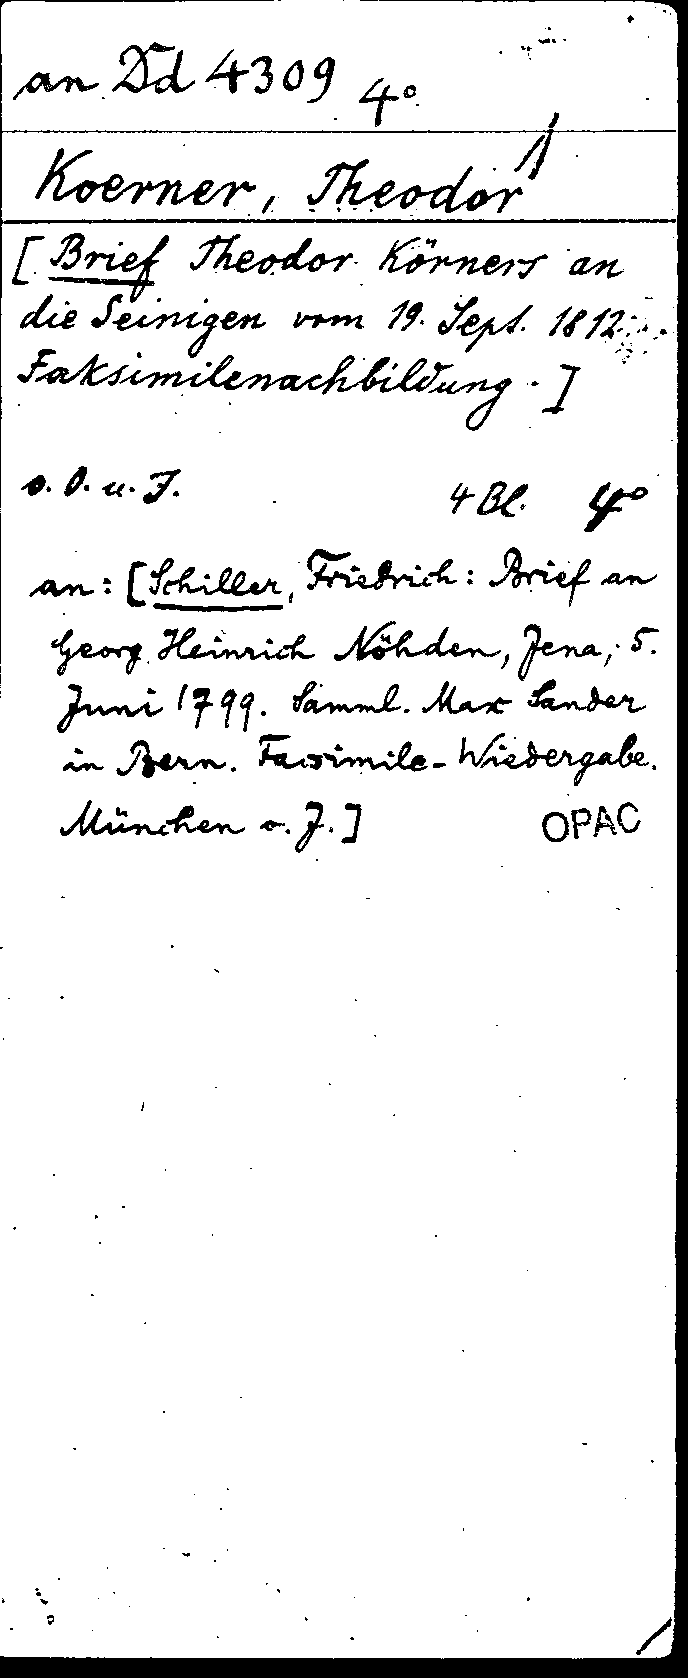 an Dd 4309 4°
Koerner, Theodor
[Brief Theodor Körners an
die Seinigen vom 19. Sept. 1812.
Faksimilenachbildung.]
o. O. u. J. 4 Bl. 4°
an: [Schiller, Friedrich: Brief an
Georg Heinrich Nöhden, Jena, 5.
Juni 1799. Samml. Max Sander
in Bern. Facsimile-Wiedergabe.
München o. J.]
OPAC